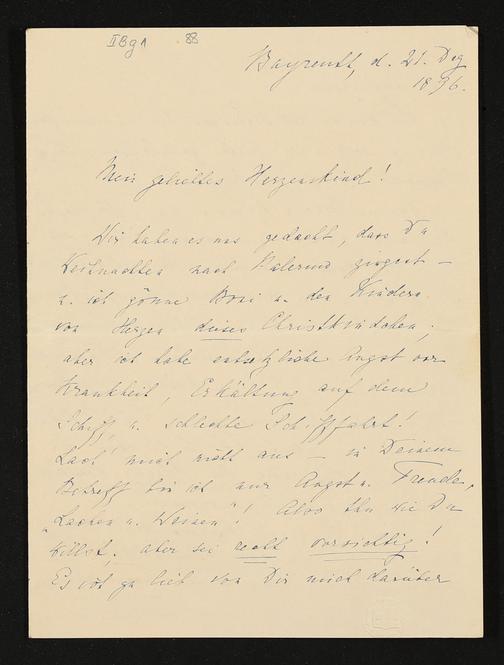 II B g 1 88
Bayreuth, d. 21. Dez
1896.
Mein geliebtes Herzenskind!
Wir haben es uns gedacht, dass Du
Weihnachten nach Palermo gingest –
u. ich gönne Boni u. den Kindern
von Herzen dieses Christkindchen;
aber ich habe entsetzliche Angst vor
Krankheit, Erkältung auf dem
Schiff, u. schlechte Schifffahrt!
Lach' mich nicht aus – in Deinem
Betreff bin ich nur Angst u. Freude,
„Lachen u. Weinen"! Also thu wie Du
willst, aber sei recht vorsichtig!
Es ist ja lieb von Dir mich darüber